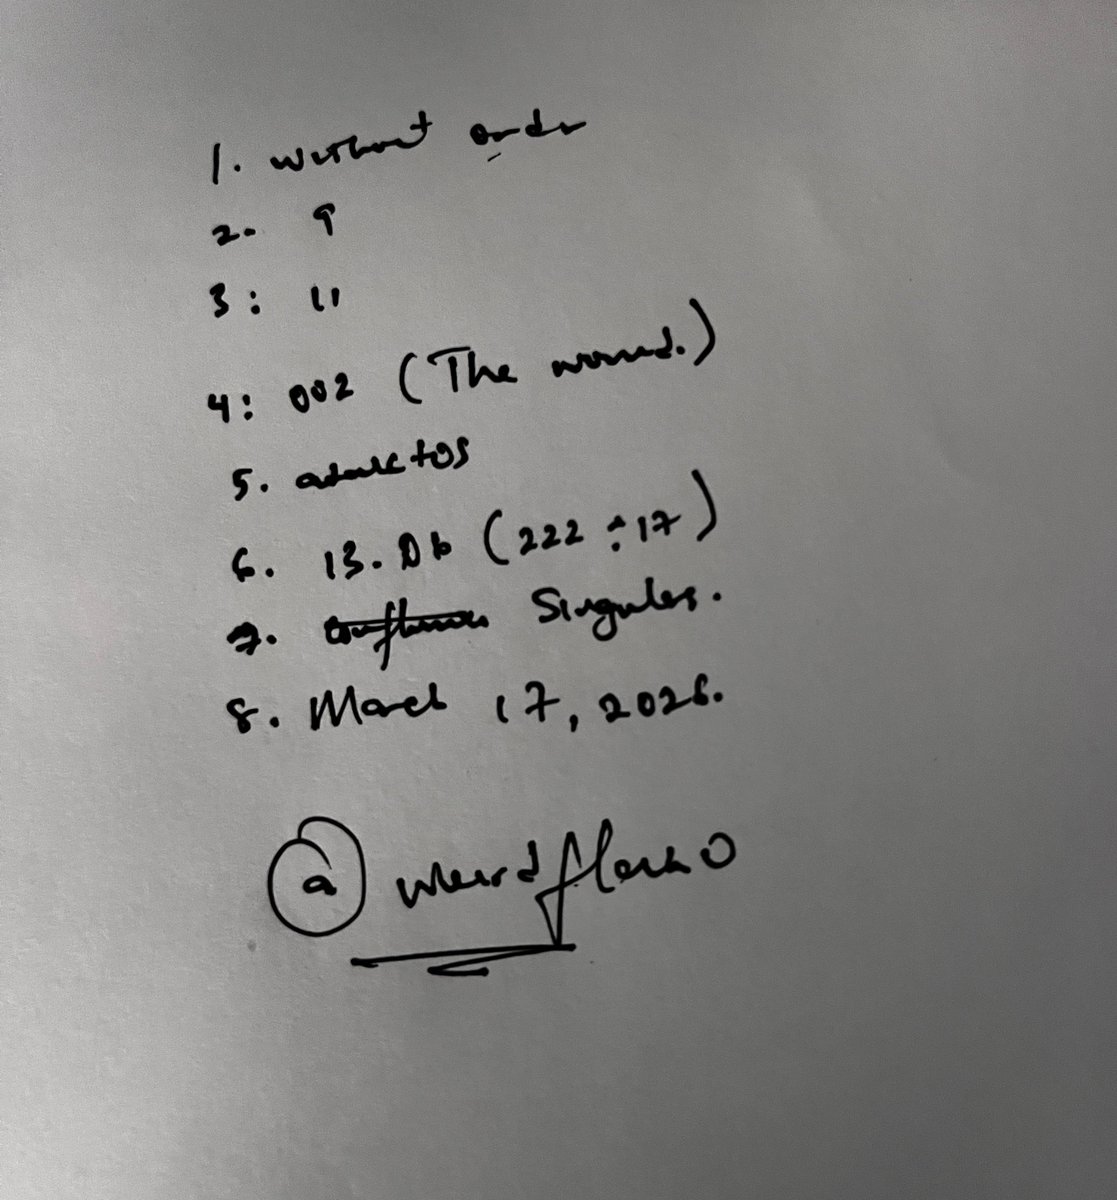 1. without order
2. 9
3: 11
4: 002 (The wound.)
5.
6. 13.06 (222 ÷ 17)
7. Singular.
8. March 17, 2026.
@weirdflexx0